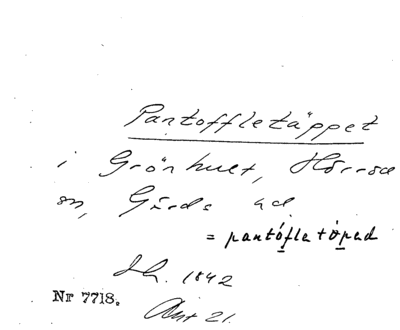 Pantoffletäppet
i Grönhult, Hörröd
sn, Gärds hd
= pantófletö̱pəd
1842
Nr 7718.
Akt 21.